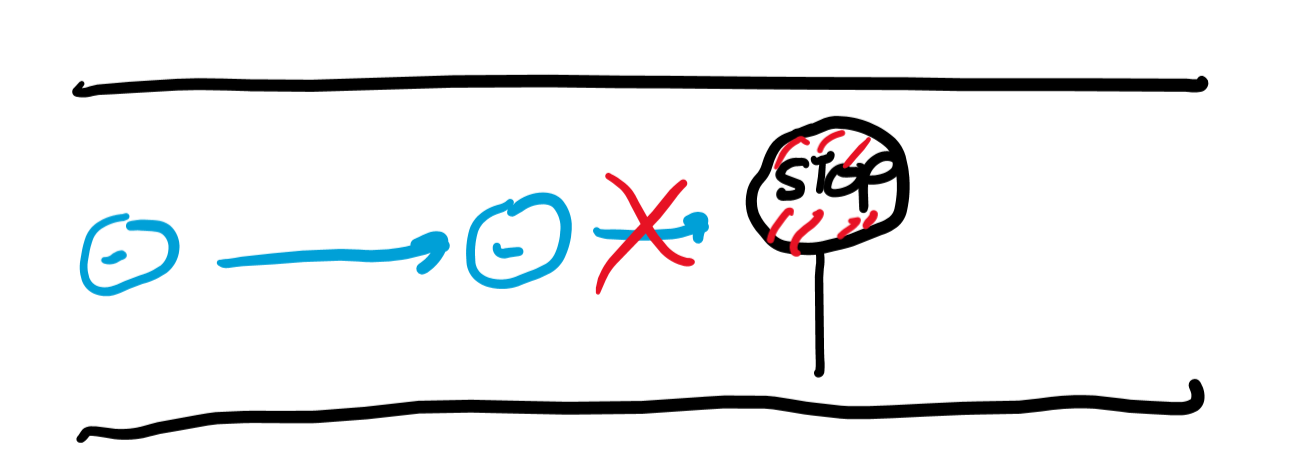 -
-
STOP